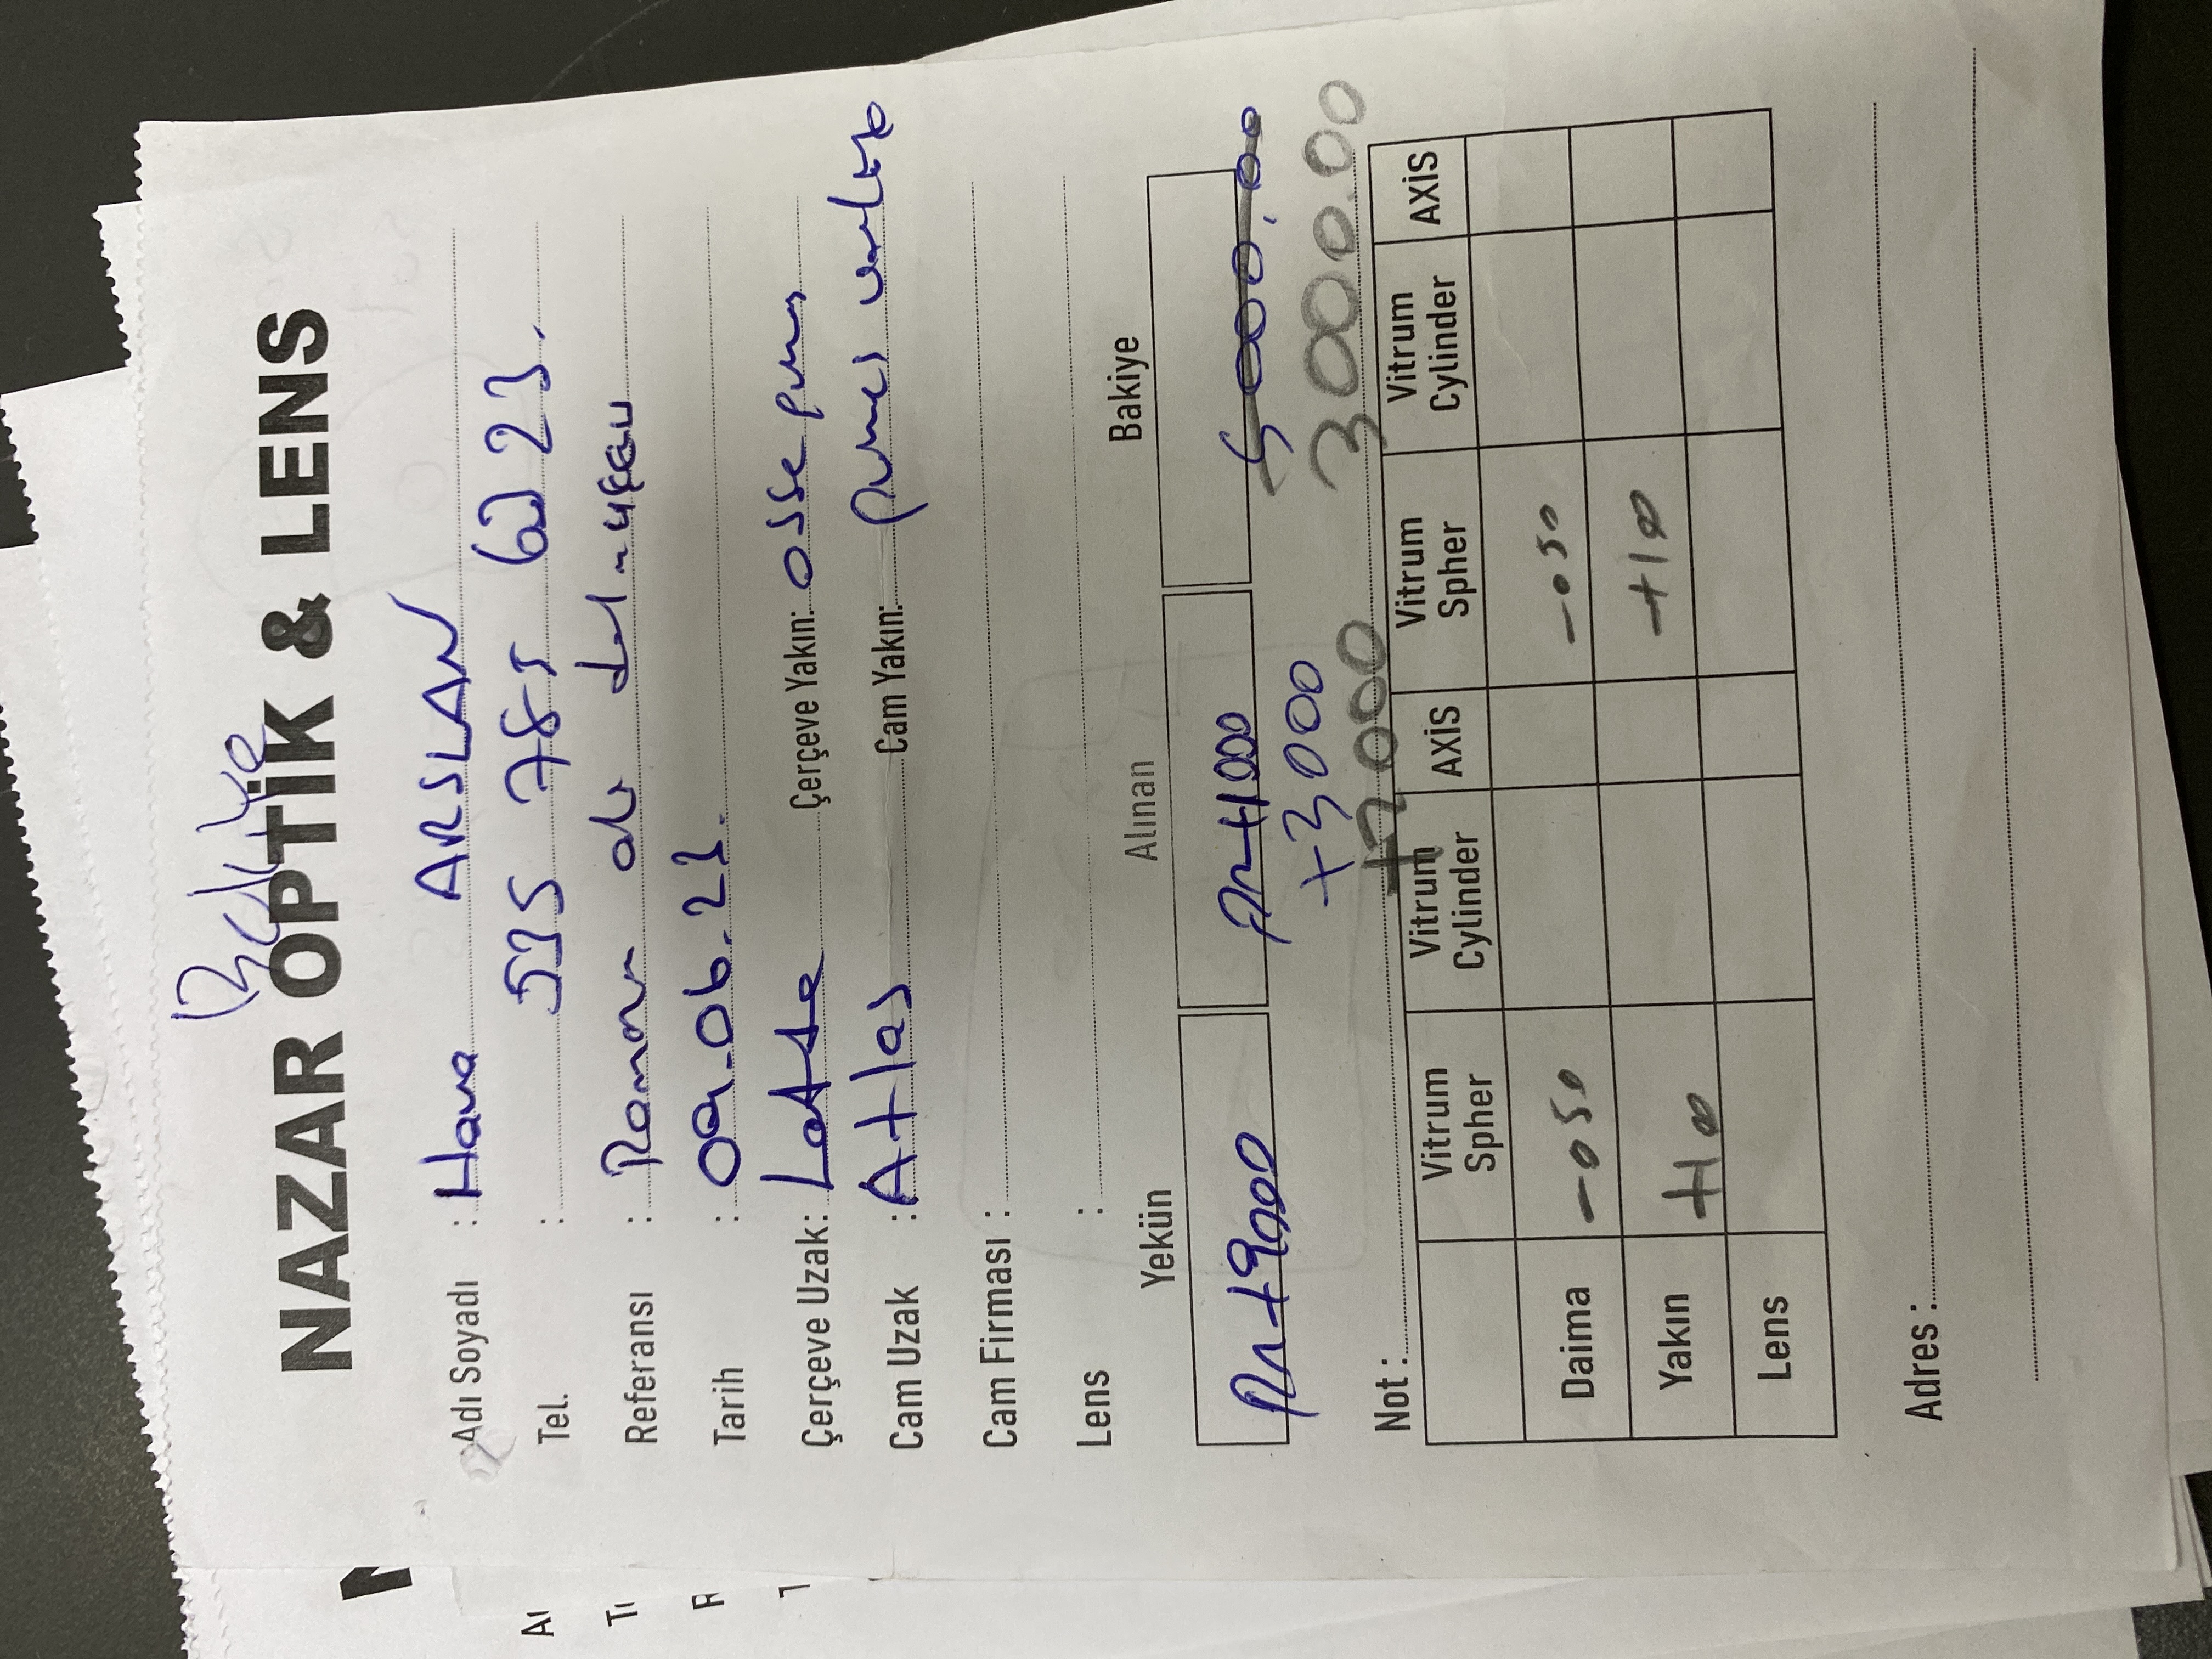 Bakiye
NAZAR OPTİK & LENS
Adı Soyadı : Hava ARSLAN
Tel. : 535 785 60 23.
Referansı : Ramazan abi
Tarih : 09.06.23.
Çerçeve Uzak: Latte Çerçeve Yakın: osse güneş
Cam Uzak : Atlas Cam Yakın: güneş
Cam Firması :
Lens :
Yekün Alınan Bakiye
+9000 +1000 5000,00
+3000
+2000 3000.00
Not :
Vitrum Spher Vitrum Cylinder AXİS Vitrum Spher Vitrum Cylinder AXİS
Daima -050 -050
Yakın +100 +100
Lens
Adres :